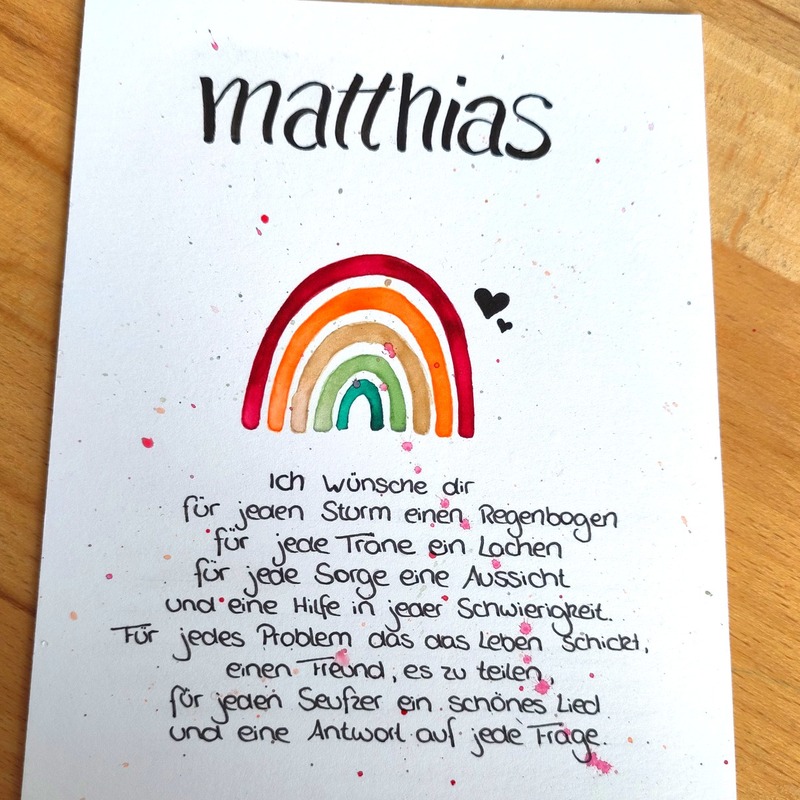 matthias
Ich wünsche dir
für jeden Sturm einen Regenbogen
für jede Träne ein Lachen
für jede Sorge eine Aussicht
und eine Hilfe in jeder Schwierigkeit.
Für jedes Problem das das Leben schickt,
einen Freund, es zu teilen,
für jeden Seufzer ein schönes Lied
und eine Antwort auf jede Frage.